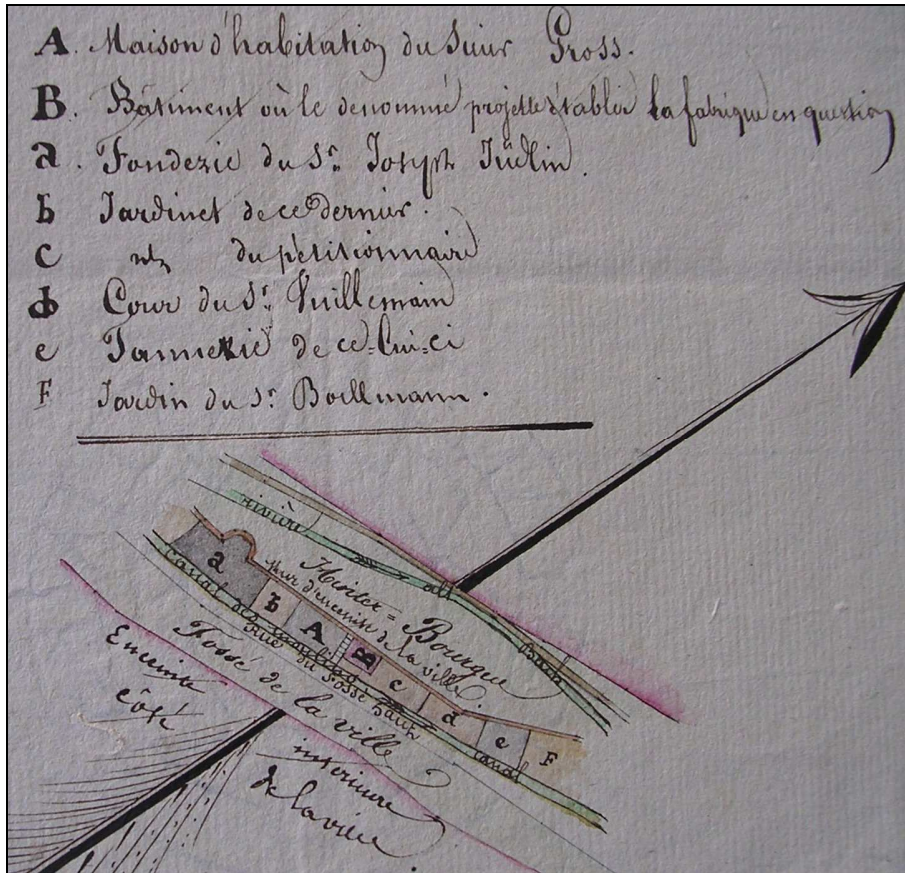 A. Maison d'habitation du Sieur Gross.
B. Bâtiment où le denommé projette établir la fabrique en question
a. Fonderie du Sr. Joseph Jüdlin.
b Jardinet de ce dernier.
c du pétitionnaire
d Cour du Sr. Vuillemain
e Tannerie de ce-lui-ci
F Jardin du Sr. Boillmann.
rivière
all
Bach
Hinter =
Bourgue
Mur d'enceinte de la ville
a
b
A
B
c
d
e
F
Canal des
Rue du Fossé haut
canal
Fossé de la ville
Enceinte
côté
intérieure
de la ville